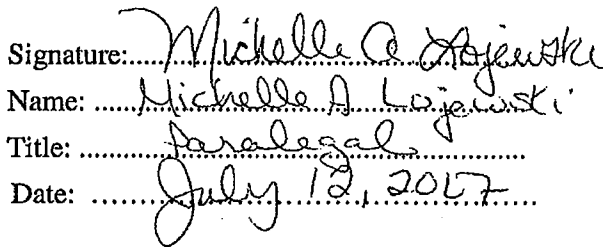 Signature: Michelle A Lojewski
Name: Michelle A Lojewski
Title: Paralegal
Date: July 12, 2017